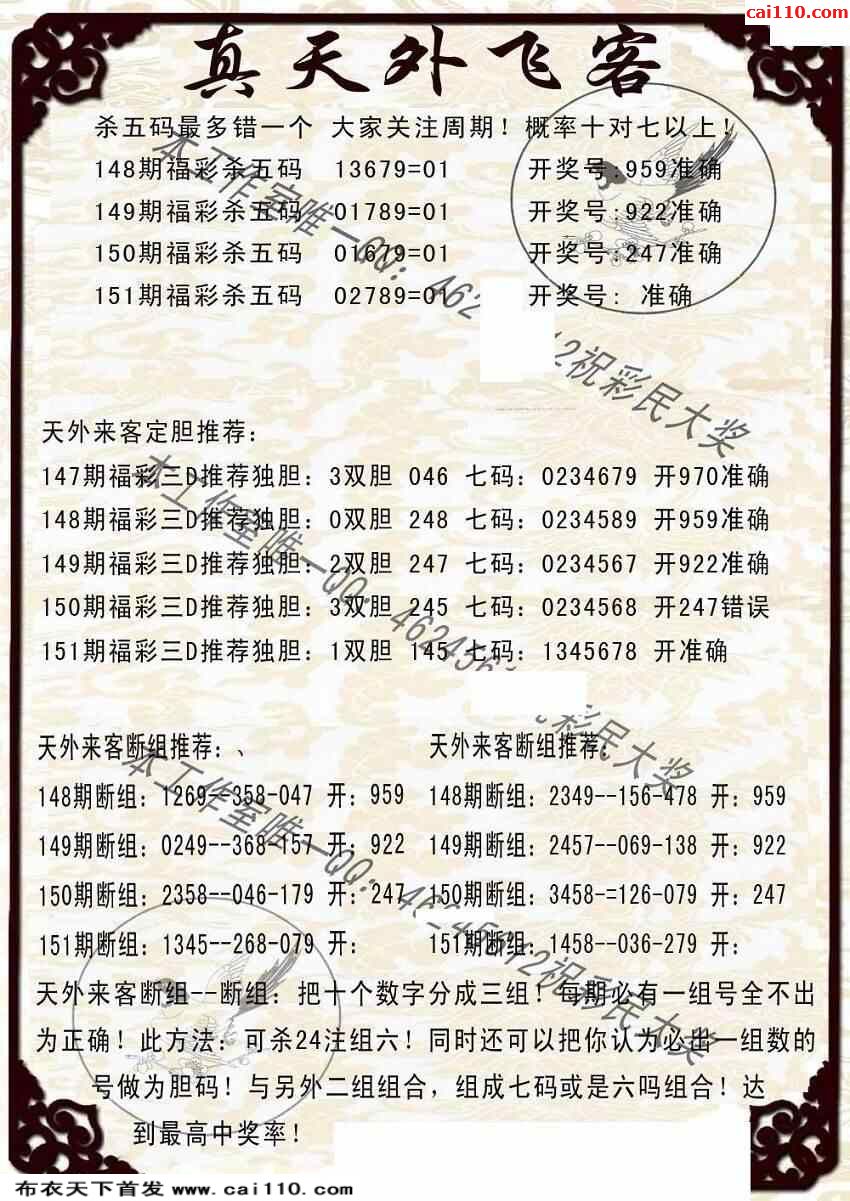 cai110.com
真天外飞客
杀五码最多错一个 大家关注周期！概率十对七以上！
148期福彩杀五码 13679=01 开奖号:959准确
149期福彩杀五码 01789=01 开奖号:922准确
150期福彩杀五码 01679=01 开奖号:247准确
151期福彩杀五码 02789=01 开奖号: 准确
天外来客定胆推荐：
147期福彩三D推荐独胆：3双胆 046 七码：0234679 开970准确
148期福彩三D推荐独胆：0双胆 248 七码：0234589 开959准确
149期福彩三D推荐独胆：2双胆 247 七码：0234567 开922准确
150期福彩三D推荐独胆：3双胆 245 七码：0234568 开247错误
151期福彩三D推荐独胆：1双胆 145 七码：1345678 开准确
天外来客断组推荐：、 天外来客断组推荐：
148期断组：1269--358-047 开：959 148期断组：2349--156-478 开：959
149期断组：0249--368-157 开：922 149期断组：2457--069-138 开：922
150期断组：2358--046-179 开：247 150期断组：3458-=126-079 开：247
151期断组：1345--268-079 开： 151期断组：1458--036-279 开：
天外来客断组--断组：把十个数字分成三组！每期必有一组号全不出
为正确！此方法：可杀24注组六！同时还可以把你认为必出一组数的
号做为胆码！与另外二组组合，组成七码或是六吗组合！达
到最高中奖率！
本工作室唯一QQ：462 12祝彩民大奖
本工作室唯一QQ：462456 彩民大奖
本工作室唯一QQ：46245612祝彩民大奖
布衣天下首发 www.cai110.com